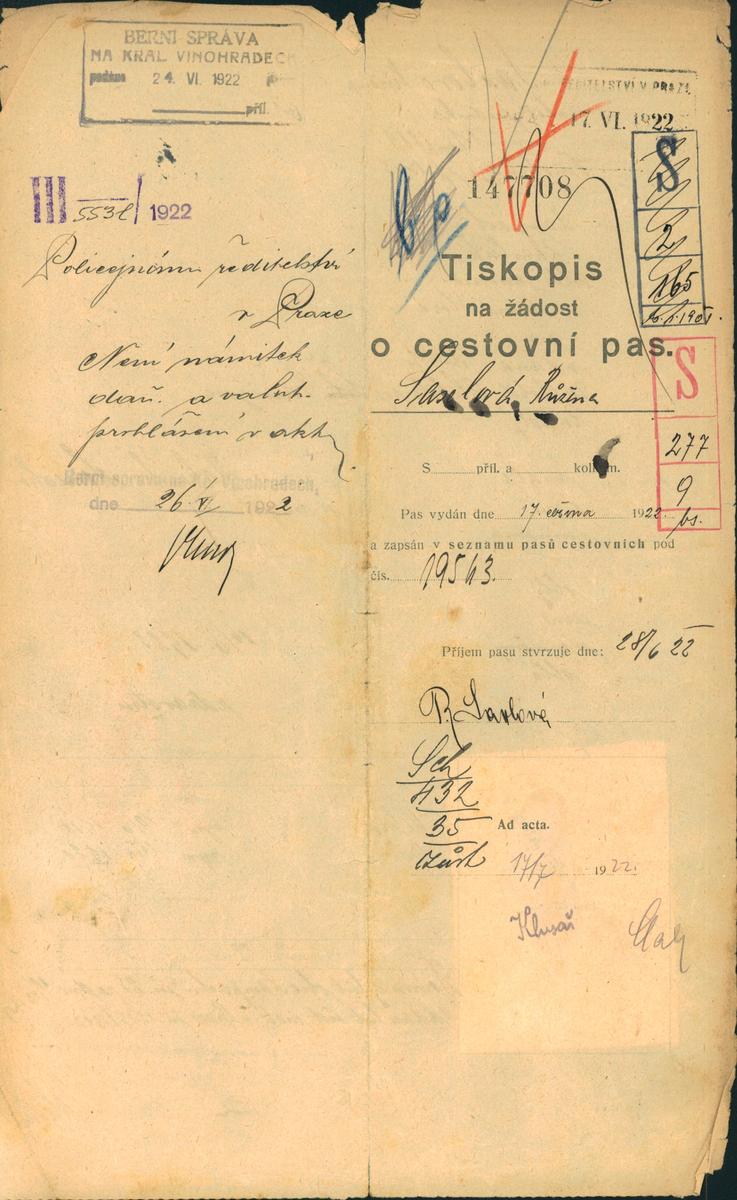 BERNÍ SPRÁVA
NA KRÁL VINOHRADECH
podáno 24. VI. 1922
příl.
III 5532/1922
Policejnímu ředitelství
v Praze
Není námitek
daň. a valut.
prohlášení v akt
Berní správa na Kr. Vinohradech,
dne 26. VI 1922
ŘEDITELSTVÍ V PRAZE
17. VI. 1922
147708
S
2
165
S
277
9
bs.
Tiskopis
na žádost
o cestovní pas.
Saxlová Růžena
S příl. a kolkem.
Pas vydán dne 17. června 1922
a zapsán v seznamu pasů cestovních pod
čís. 19543.
Příjem pasu stvrzuje dne: 28/6 22
R Saxlová
Sch
432
35
Ad acta.
17/7 1922.